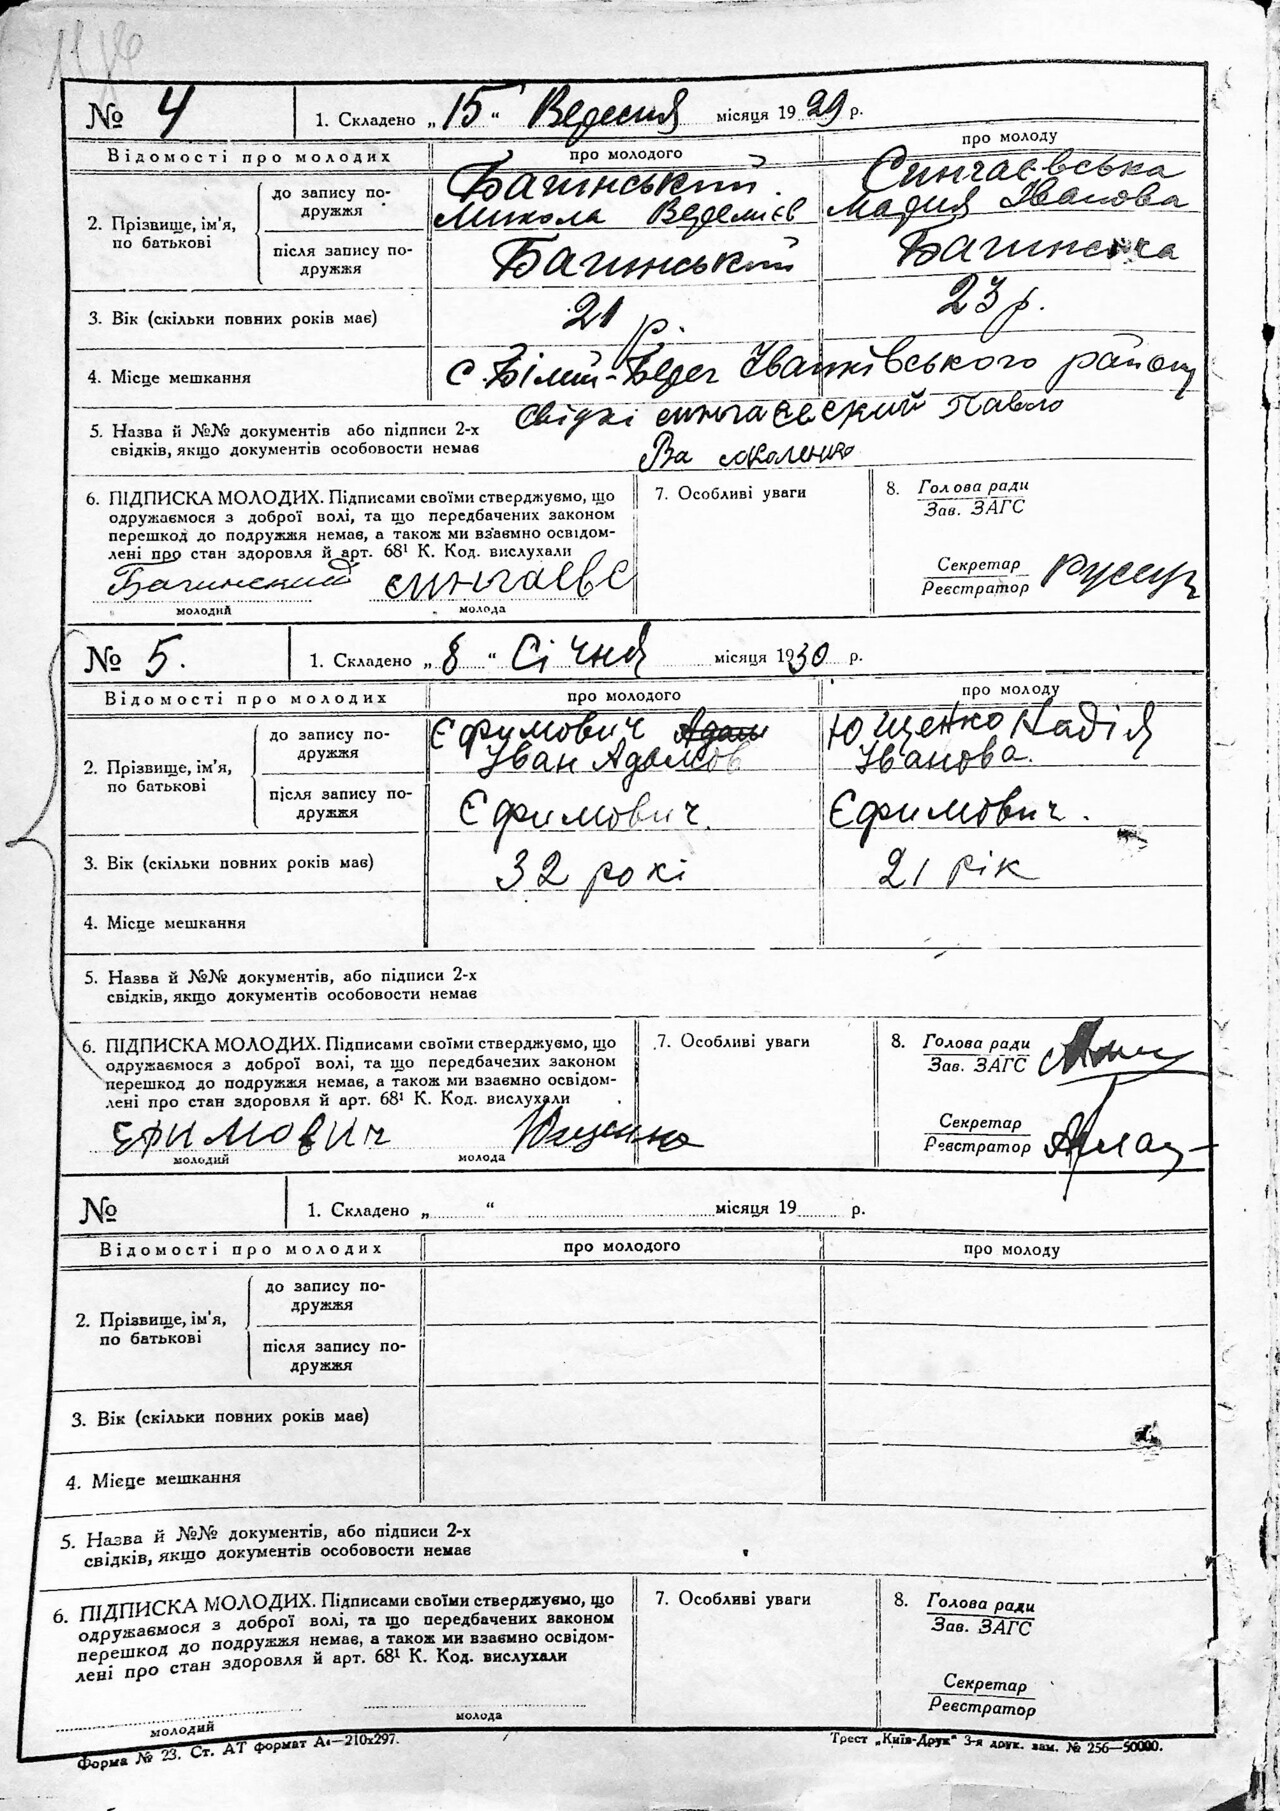 № 4 1. Складено „ 15 “ Вересня місяця 1929 р.
Відомості про молодих про молодого про молоду
2. Прізвище, ім'я, по батькові
до запису подружжя
Багинський. Сингаєвська
Микола Мария Іванова
після запису подружжя
Багинський Багинська
3. Вік (скільки повних років має) 21 р. 23 р.
4. Місце мешкання с. Білий-Берег Іванківського району
5. Назва й №№ документів або підписи 2-х Свідкі сингаевский Павло
свідків, якщо документів особовости немає
6. ПІДПИСКА МОЛОДИХ. Підписами своїми стверджуємо, що
одружаємося з доброї волі, та що передбачених законом
перешкод до подружжя немає, а також ми взаємно освідом-
лені про стан здоровля й арт. 68¹ К. Код. вислухали
Багинский сингаевс
молодий молода
7. Особливі уваги
8. Голова ради
Зав. ЗАГС
Секретар
Реєстратор
№ 5. 1. Складено „ 8 “ Січня місяця 1930 р.
Відомості про молодих про молодого про молоду
2. Прізвище, ім'я, по батькові
до запису подружжя
Єфимович Адам Ющенко Надія
Іван Адамов Іванова.
після запису подружжя
Єфимович. Єфимович.
3. Вік (скільки повних років має) 32 рокі 21 рік
4. Місце мешкання
5. Назва й №№ документів, або підписи 2-х
свідків, якщо документів особовости немає
6. ПІДПИСКА МОЛОДИХ. Підписами своїми стверджуємо, що
одружаємося з доброї волі, та що передбачених законом
перешкод до подружжя немає, а також ми взаємно освідом-
лені про стан здоровля й арт. 68¹ К. Код. вислухали
Єфимович Ющенко
молодий молода
7. Особливі уваги
8. Голова ради
Зав. ЗАГС
Секретар
Реєстратор
№ 1. Складено „ “ місяця 19 р.
Відомості про молодих про молодого про молоду
2. Прізвище, ім'я, по батькові
до запису подружжя
після запису подружжя
3. Вік (скільки повних років має)
4. Місце мешкання
5. Назва й №№ документів, або підписи 2-х
свідків, якщо документів особовости немає
6. ПІДПИСКА МОЛОДИХ. Підписами своїми стверджуємо, що
одружаємося з доброї волі, та що передбачених законом
перешкод до подружжя немає, а також ми взаємно освідом-
лені про стан здоровля й арт. 68¹ К. Код. вислухали
молодий молода
7. Особливі уваги
8. Голова ради
Зав. ЗАГС
Секретар
Реєстратор
Форма № 23. Ст. АТ формат А₄—210x297. Трест „Київ-Друк“ 3-я друк. зам. № 256—50000.